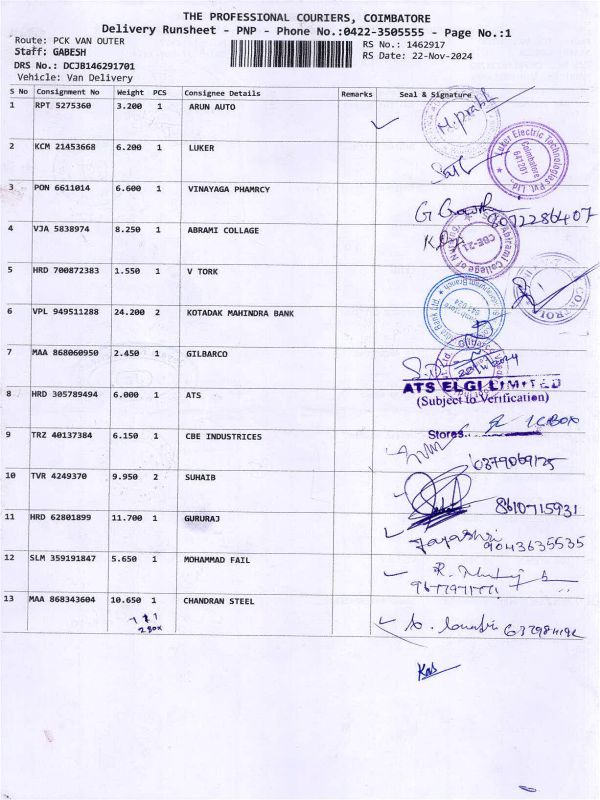 THE PROFESSIONAL COURIERS, COIMBATORE
Delivery Runsheet - PNP - Phone No.:0422-3505555 - Page No.:1
Route: PCK VAN OUTER
RS No.: 1462917
Staff: GABESH
RS Date: 22-Nov-2024
DRS No.: DCJB146291701
Vehicle: Van Delivery
S No Consignment No Weight PCS Consignee Details Remarks Seal & Signature
1 RPT 5275360 3.200 1 ARUN AUTO
2 KCM 21453668 6.200 1 LUKER
Luker Electric Technologies Pvt. Ltd. Coimbatore 641201
3 PON 6611014 6.600 1 VINAYAGA PHAMRCY
4 VJA 5838974 8.250 1 ABRAMI COLLAGE
Abirami College of Nursing CBE-21
5 HRD 700872383 1.550 1 V TORK
6 VPL 949511288 24.200 2 KOTADAK MAHINDRA BANK
7 MAA 868060950 2.450 1 GILBARCO
ATS ELGI LIMITED
8 HRD 305789494 6.000 1 ATS
(Subject to Verification)
Stores
9 TRZ 40137384 6.150 1 CBE INDUSTRICES
10 TVR 4249370 9.950 2 SUHAIB
8610715931
11 HRD 62801899 11.700 1 GURURAJ
Jayashri
9043635535
12 SLM 359191847 5.650 1 MOHAMMAD FAIL
13 MAA 868343604 10.650 1 CHANDRAN STEEL
2 BOX